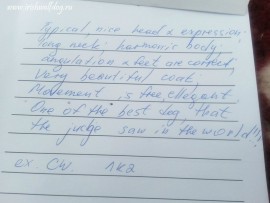 Typical, nice head & expression
long neck; harmonic body,
angulation & feet are correct,
very beautiful coat;
Movement is free, ellegent
One of the best dog, that
the judge saw in the world!!!
ex. CW.